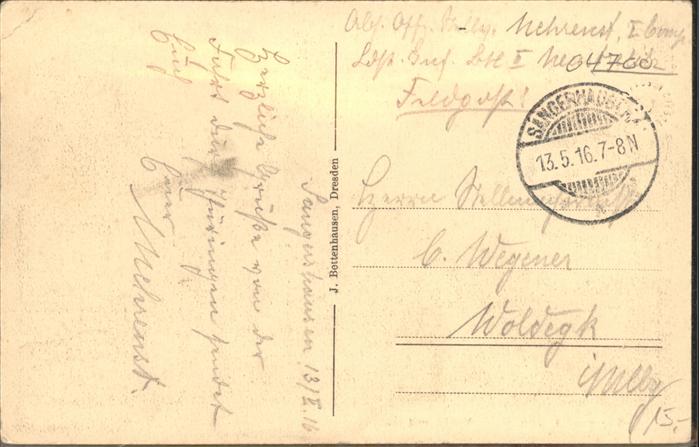 Abs. Off. Stellv. Mehrenst, I. Comp
Ldst. Inf. Btl II
04700
Feldpost!
SANGERHAUSEN
13.5.16.7-8N
Herrn
C. Wegener
Woldegk
Meckb
15.-
J. Bottenhausen, Dresden
Sangerhausen 13/V.16
Herzliche Grüße von der
Fahrt durch Thüringen sendet
Euch
Euer
Mehrenst.